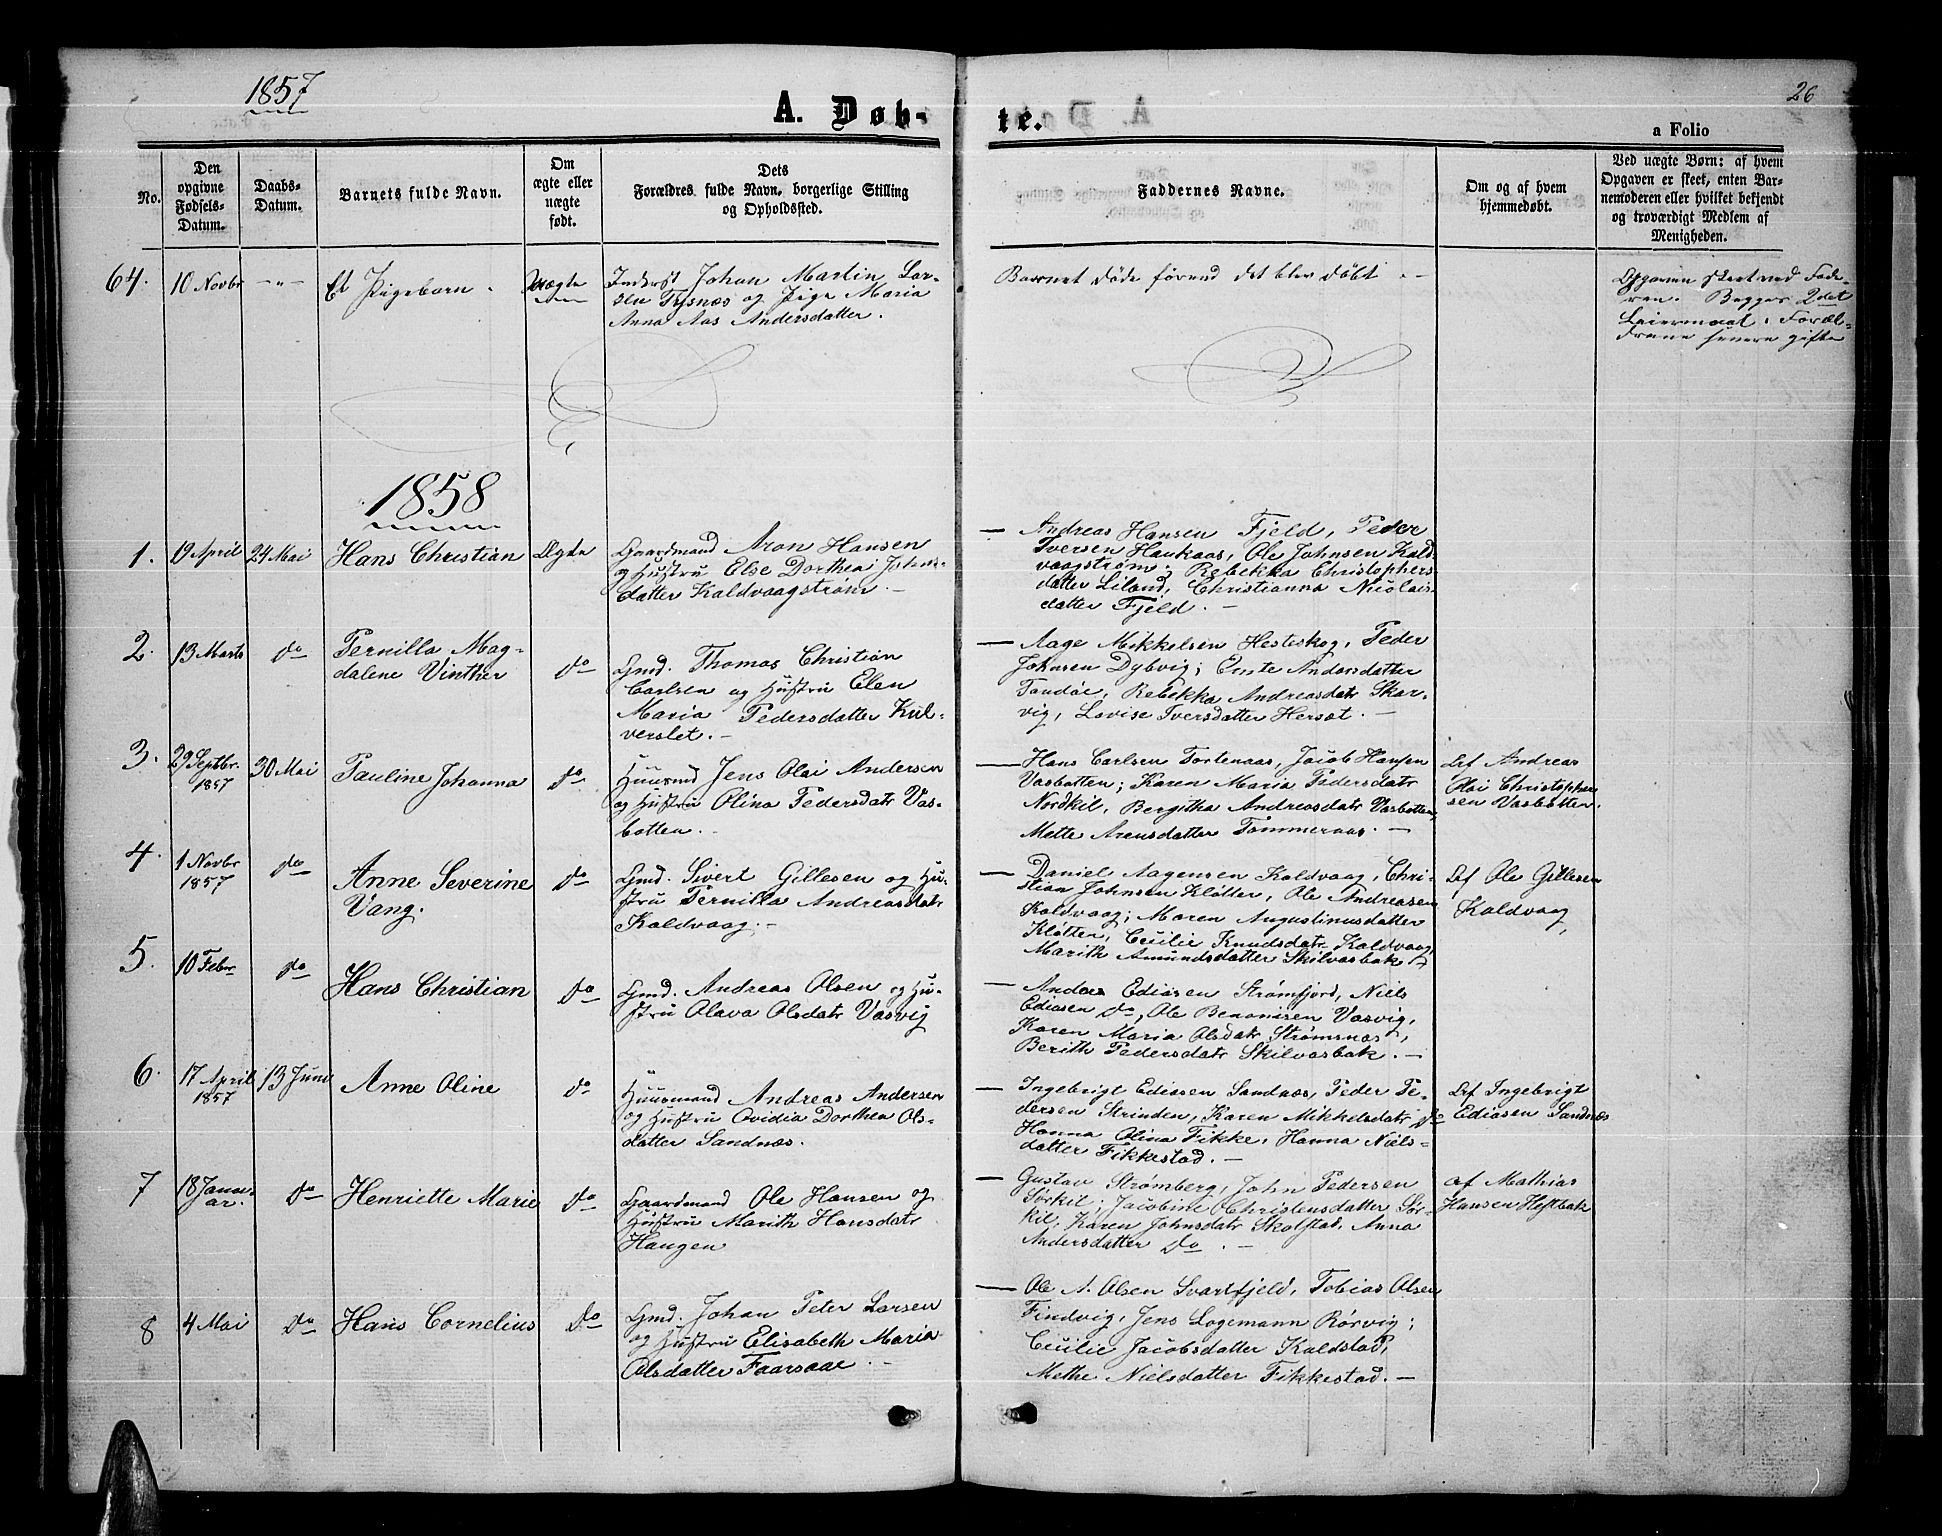 1857
26
A. Døb-
te.
a Folio
No.
Den
opgivne
Fødsels-
Datum.
Daabs-
Datum.
Barnets fulde Navn.
Om
ægte eller
uægte
født.
Dets
Forældres fulde Navn, borgerlige Stilling
og Opholdssted.
Faddernes Navne.
Om og af hvem
hjemmedøbt.
Ved uægte Børn: af hvem
Opgaven er skeet, enten Bar-
nemoderen eller hvilket bekjendt
og troværdigt Medlem af
Menigheden.
64.
10 Novbr
-„-
Et Pigebarn.
Uægte
Inderst Johan Martin Lar-
sen Tysnæs og Pige Maria
Anna Aas Andersdatter.
Barnet døde førend det blev døbt.-
Opgaven skeet ved Fade-
ren. Begges 2det
Leiermaal. Foræl-
drene senere gifte
1858
1.
19 April
24 Mai
Hans Christian
Ægte
Gaardmand Aron Hansen
og Hustru Else Dorthea Johns-
datter Kaldvaagstrøm.-
- Andreas Hansen Fjeld, Peder
Iversen Haukaas, Ole Johnsen Kald-
vaagstrøm; Rebekka Christophers-
datter Liland, Christianna Nicolais-
datter Fjeld.-
2.
13 Marts
do
Pernilla Mag-
dalene Vinther
do
Gmd. Thomas Christian
Carlsen og Hustru Elen
Maria Pedersdatter Kul-
verslet.-
- Aage Mikkelsen Hesteskog, Peder
Johnsen Dybvig; Emte Andersdatter
Tandøe, Rebekka Andreasdatr Skar-
vig, Lovise Iversdatter Hersæt.-
3.
29 Septbr.
1857
30 Mai
Pauline Johanna
do
Huusmd Jens Olai Andersen
og Hustru Olina Pedersdatr Vas-
botten.-
- Hans Carlsen Tortenaas, Jacob Hansen
Vasbotten; Karen Maria Pedersdatr
Nordkil, Bergitha Andreasdatr Vasbotten,
Mette Arensdatter Tømmeraas.-
af Andreas
Olai Christopher-
sen Vasbotten.
4.
1 Novbr
1857
do
Anne Severine
Vang.
do
Gmd. Sivert Gillesen og Hu-
stru Pernilla Andreasdatr
Kaldvaag.-
- Daniel Aagensen Kaldvaag, Chri-
stian Johnsen Kløtter, Ole Andreasen
Kaldvaag; Maren Augustinusdatter
Kløtten, Cecilie Knudsdatr Kaldvaag,
Marith Amundsdatter Skilvasbak.-
af Ole Gillesen
Kaldvaag,
5.
10 Febr
do
Hans Christian
do
Gmd. Andreas Olsen og Hu-
stru Olava Olsdatr Vasvig
- Anders Ediasen Strømfjord, Niels
Ediasen do, Ole Benonisen Vasvig,
Karen Maria Olsdatr Strømsnæs,
Berith Pedersdatr Skilvasbak.-
6.
17 April
1857
13 Juni
Anne Oline
do
Huusmand Andreas Andersen
og Hustru Ovidia Dorthea Ols-
datter Sandnæs.
- Ingebrigt Ediasen Sandnæs, Peder Pe-
dersen Strinden, Karen Mikkelsdatr do
Hanna Olina Fikke, Hanna Niels-
datter Fikkestad.-
af Ingebrigt
Ediasen Sandnæs
7
18 Janu-
ar.
do
Henriette Marie
do
Gaardmand Ole Hansen og
Hustru Marith Hansdatr
Haugen
- Gustav Strømberg, John Pedersen
Sørkil; Jacobine Christensdatter Sør-
kil, Karen Johnsdatr Skolstad, Anna
Andersdatter do.-
af Mathias
Hansen Hestbak
8
4 Mai
do
Hans Cornelius
do
Gmd. Johan Peter Larsen
og Hustru Elisabeth Maria
Olsdatter Faarsaae.-
- Ole N. Olsen Svartfjeld, Tobias Olsen
Findvig, Jens Lagemann Rørvig;
Cecilie Jacobsdatter Kaldstad,
Methe Nielsdatter Fikkestad.-